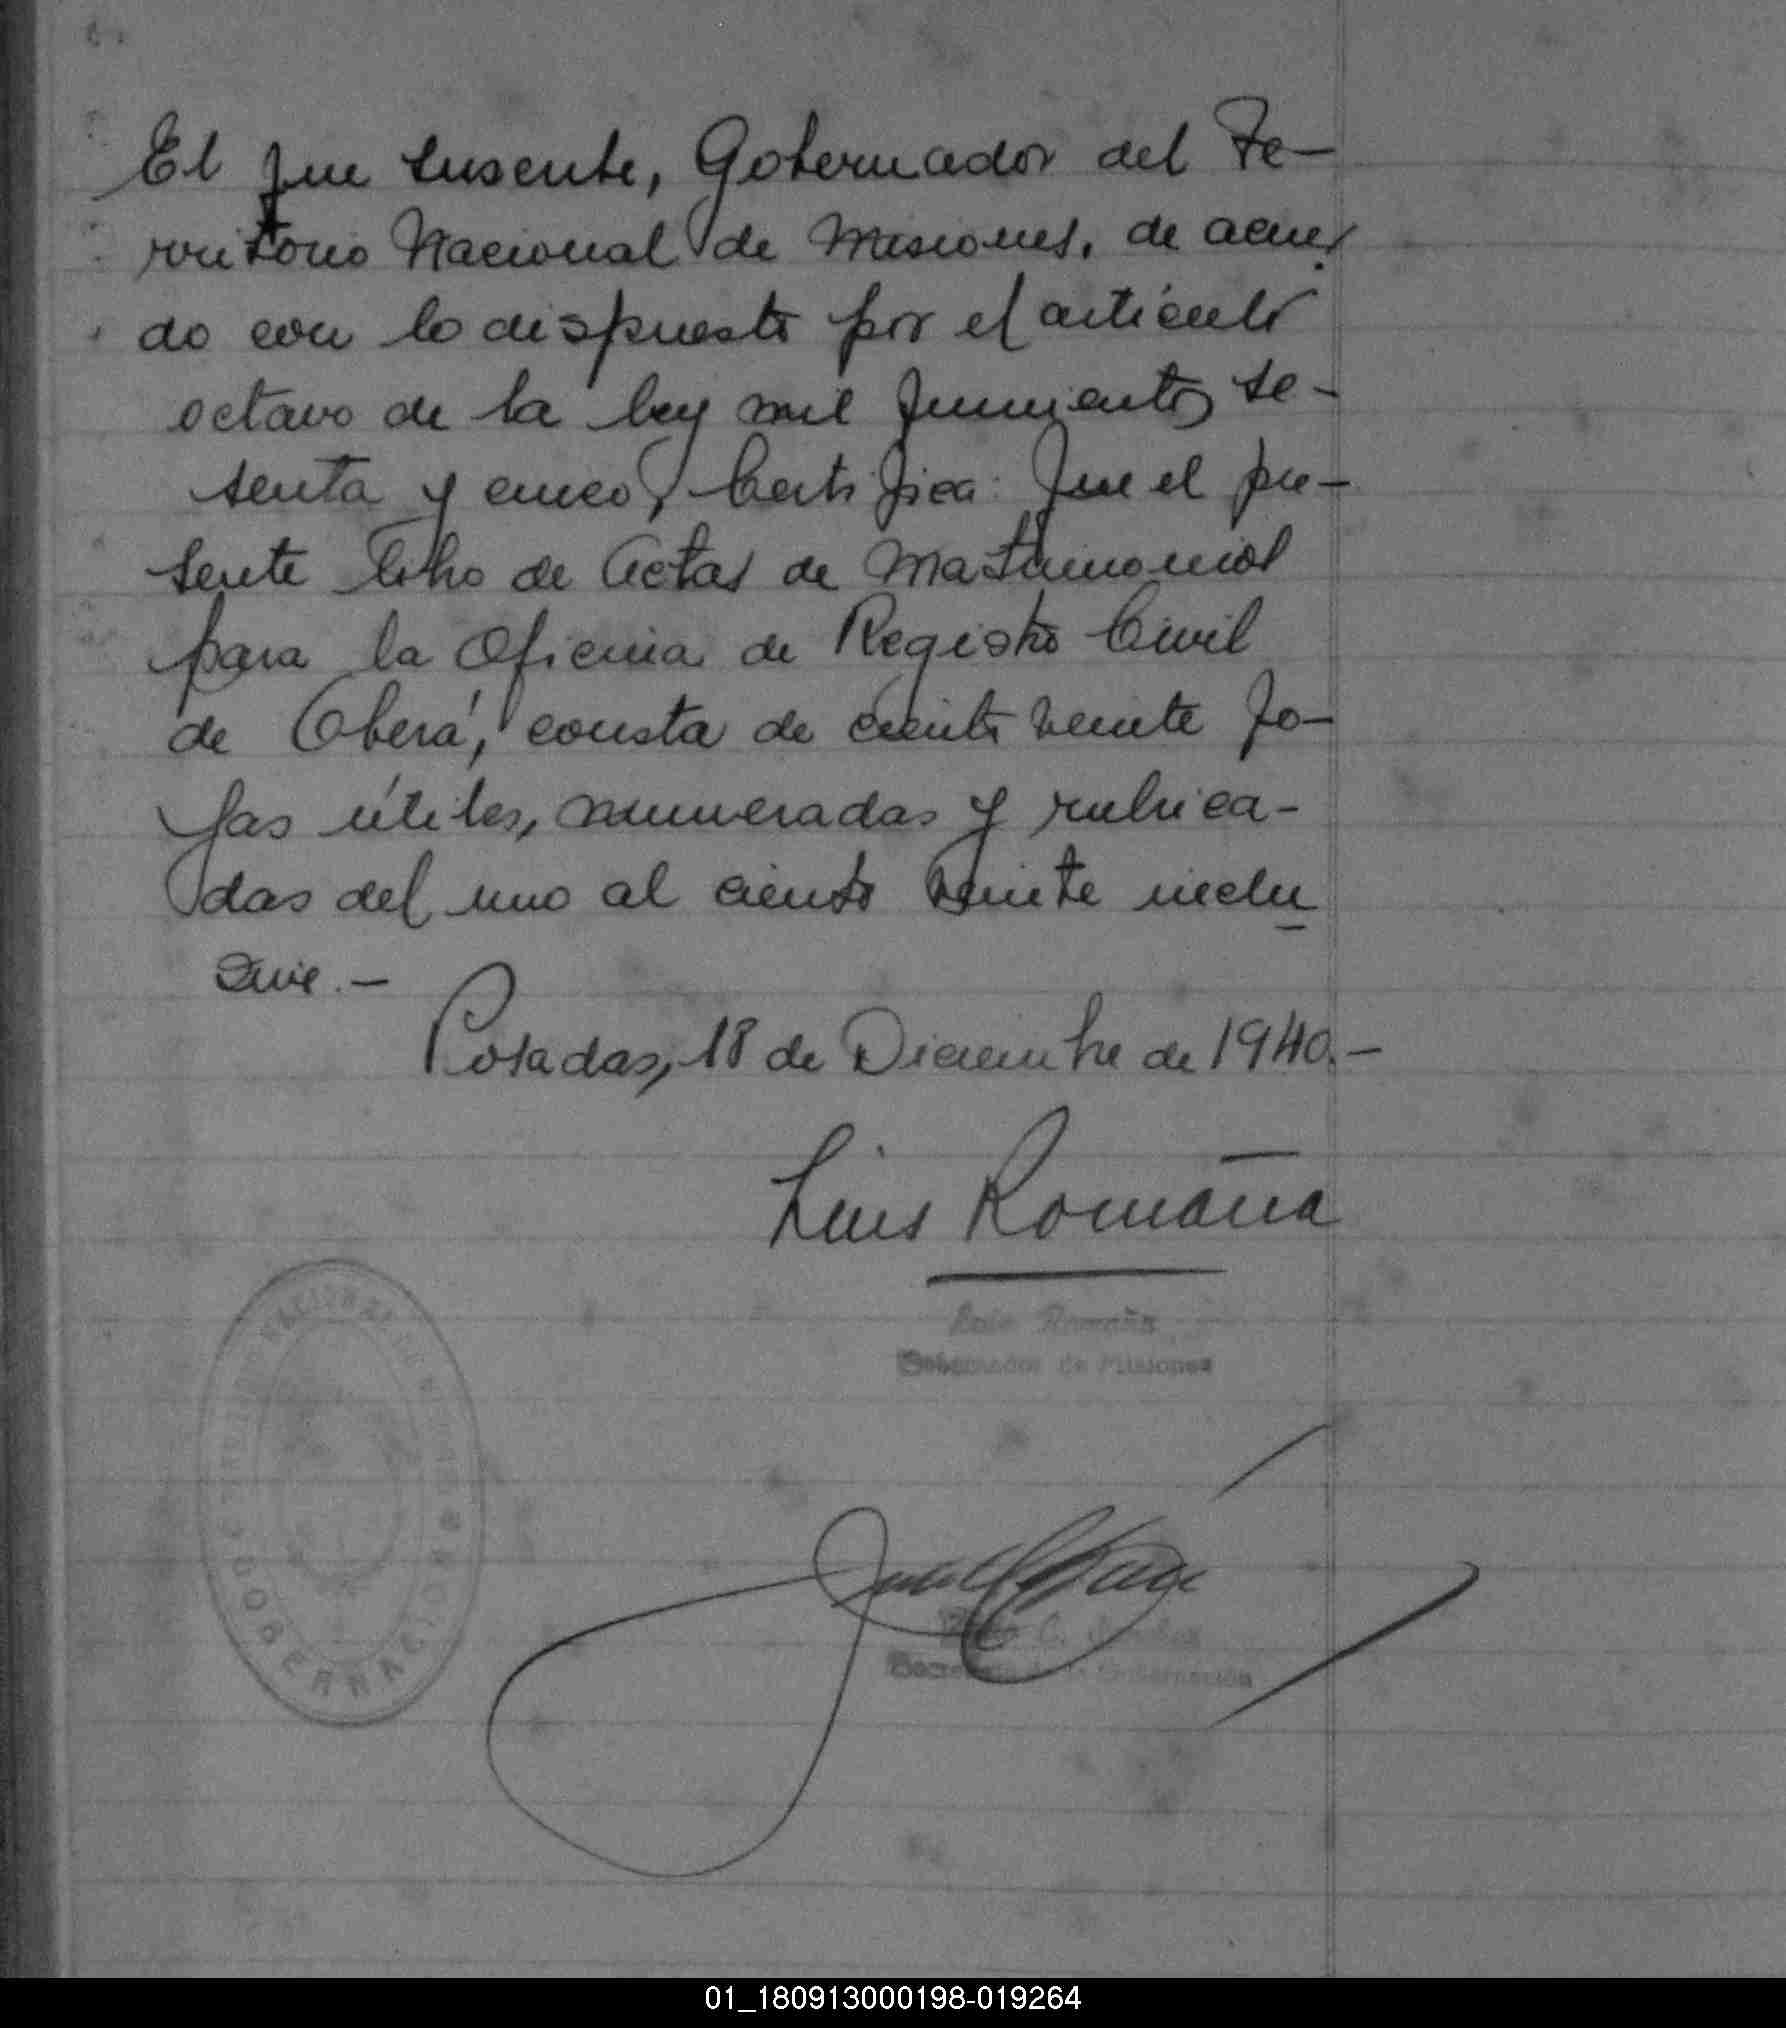 El que suscribe, Gobernador del Te-
rritorio Nacional de Misiones, de acuer
do con lo dispuesto por el artículo
octavo de la ley mil quinientos se-
senta y cinco, Certifica: Que el pre-
sente Libro de Actas de Matrimonios
para la Oficina de Registro Civil
de Oberá, consta de ciento veinte fo-
jas útiles, numeradas y rubrica-
das del uno al ciento veinte inclu
sive.-
Posadas, 18 de Diciembre de 1940.-
Luis Romaña
Luis Romaña
Gobernador de Misiones
Secretario de la Gobernación
GOBERNACION
NACIONAL DE
01_180913000198-019264